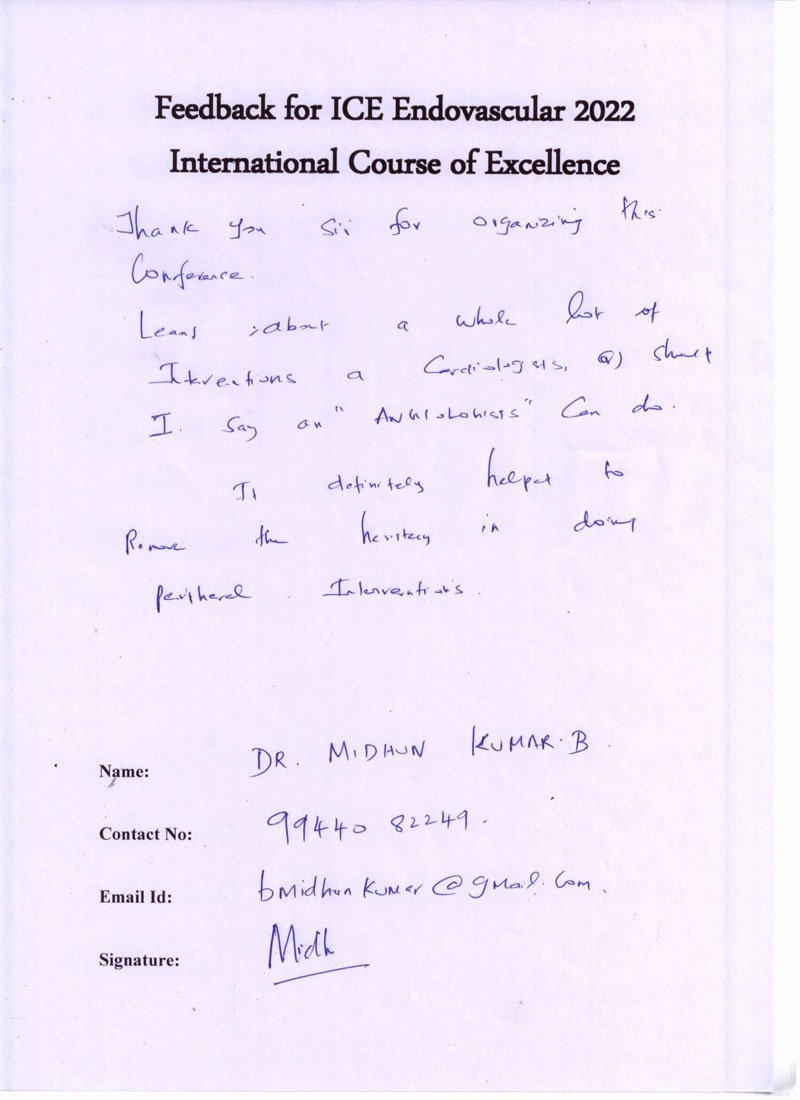 Feedback for ICE Endovascular 2022
International Course of Excellence
Thank you sir for organizing this
Conference.
Learnt about a whole lot of
Interventions a Cardiologists, (or) should
I say an "ANGIOLOGISTS" Can do.
It definitely helped to
Remove the in doing
peripheral Interventions.
Name: DR. MIDHUN KUMAR. B
Contact No: 99440 82249.
Email Id: bmidhunkumar@gmail.com.
Signature: Midh